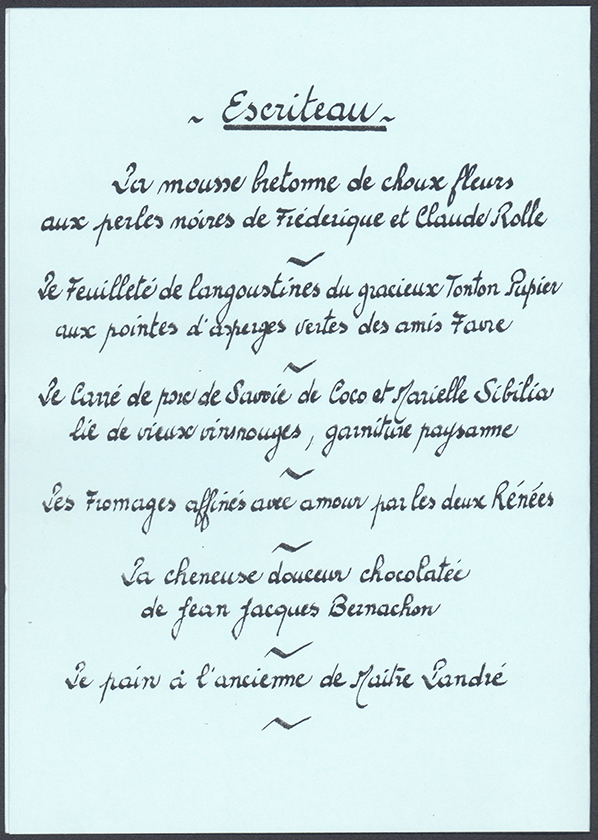 ~ Escriteau ~
La mousse bretonne de choux fleurs
aux perles noires de Fréderique et Claude Rolle
~
Le Feuilleté de langoustines du gracieux Tonton Pupier
aux pointes d'asperges vertes des amis Favre
~
Le Carré de porc de Savoie de Coco et Marielle Sibilia
lie de vieux vins rouges, garniture paysanne
~
Les Fromages affinés avec amour par les deux Rénées
~
La cheneuse douceur chocolatée
de Jean Jacques Bernachon
~
Le pain à l'ancienne de Maitre Landré
~